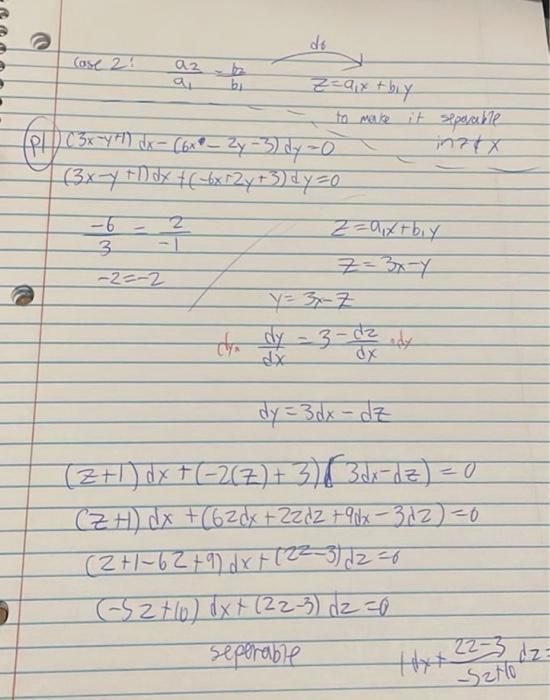 do
Case 2: a2/a1 = b2/b1
z = a1x + b1y
to make it separable
in z & x
P1) (3x-y+1) dx - (6x - 2y - 3) dy = 0
(3x-y+1) dx + (-6x+2y+3) dy = 0
-6/3 = 2/-1
z = a1x + b1y
-2 = -2
z = 3x - y
y = 3x - z
dx · dy/dx = 3 - dz/dx · dx
dy = 3dx - dz
(z+1) dx + (-2(z)+3)(3dx-dz) = 0
(z+1) dx + (6zdx + 2zdz + 9dx - 3dz) = 0
(z+1-6z+9) dx + (2z-3) dz = 0
(-5z+10) dx + (2z-3) dz = 0
seperable
1dx + 2z-3/-5z+10 dz =